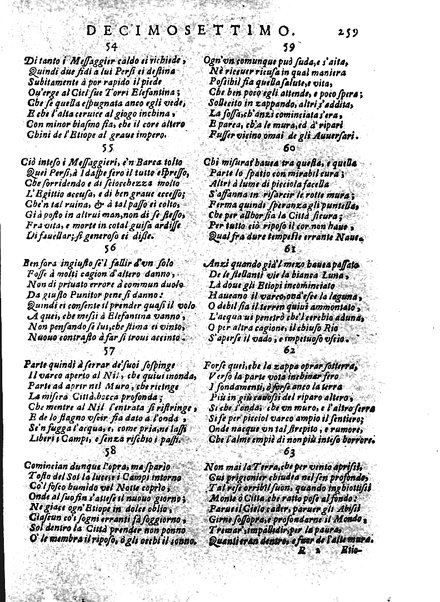 DECIMOSETTIMO. 259
54
Di tanto i Messaggier caldo ei richiede,
Quindi due fidi a lui Persi ei destina
Subitamente à por rapido il piede
Ou'erge al Ciel sue Torri Elefantina;
Che se quella espugnata anco egli vede,
E che l'alta ceruice al giogo inchina,
Con minor biasmo fia, che il core altero
Chini de l'Etiope al graue impero.
55
Ciò inteso i Messaggieri, e'n Barca tolto
Quei Persi, à Idaspe fero il tutto espresso,
Che sorridendo e di sciocchezza molto
L'Egittio accusa, e di ben graue eccesso;
Che'n tal ruina, & à tal passo ei colto,
Già posto in altrui man, non di se stesso,
Fra vita, e morte in cotal guisa ardisse
Di fauellar; sì generoso ei disse.
56
Ben fora ingiusto s'l fallir d'vn solo
Fosse à molti cagion d'altero danno,
Non di priuato errore à commun duolo
Da giusto Punitor pene si danno:
Quindi ei consente il prender quasi il volo
A quei, che messi à Elefantina vanno,
Non pensando se lui, che stima ei vinto,
Nuouo contrasto à far sì troui accinto.
57
Parte quindi à serrar de' suoi sospinge
Il varco aperto al Nil, che quiui inonda,
Parte ad aprir nel Muro, che ricinge
La misera Città bocca profonda;
Che mentre al Nil l'entrata si ristringe,
E de lo stagno vscir fia dato a l'onda,
Se'n fugga l'acqua; e, come pria, ne lassi
Liberi i Campi, e senza rischio i passi.
58
Comincian dunque l'opra, ma sparìo
Tosto del Sol la luce; e i Campi intorno
Co'l fosco humido vel Notte coprìo;
Onde al suo fin s'attese il nuouo giorno;
Ne giace ogn'Etiope in dolce oblio,
Ciascun co' sogni erranti fà soggiorno,
Sol dentro la Città prender non ponno
O' le membra il riposo, ò gli occhi il sonno.
59
Ogn'vn comunque può suda, e s'aita,
Nè riceuer ricusa in qual maniera
Possibil sia quella salute, e vita,
Che ben poco egli attende, e poco spera;
Sollecito in zappando, altri s'addita
La fossa, ch'anzi cominciata s'era,
E parea, ch'à le mura, ed à'ripari
Fusser vicino omai de gli Auuersari.
60
Chi misurat'hauea tra quella, e quella
Parte lo spatio con mirabil cura;
Altri à lume di picciola facella
S'affanna in risarcir le rotte mura;
Ferma quindi speranza gli puntella,
Che per allhor sia la Città sicura;
Per tutto ciò riposo il cor non haue
Qual fra dure tempeste errante Naue.
61
Anzi quando già'l mezo hauea passato
De le stellanti vie la bianca Luna,
Là doue gli Etiopi incominciato
Haueano il varco, ond'esse la laguna,
O debil sia il terren quiui ammontato,
L'acqua vi penetrò che'l cerchio aduna,
O per altra cagione, il chiuso Rio
S'aperse il vado, e impetuoso vscìo.
62
Forse quei, che la zappa oprar sotterra,
Verso la parte vota inchinar fero
I fondamenti, ò forse anco la terra
Più in giù cauossi del riparo altero;
Sì che l'onda, che vn muro, e l'altro serra
Si fè per picciol varco ampio il sentiero;
Onde nacque vn tal strepito, e rumore,
Che l'alme empiè di non più inteso horrore.
63
Non mai la Terra, che per vento aprissi,
Cui prigionier chiudea nel sen profondo,
Tal rese orribil suon, quando inghiottissi
Monte ò Città che ratto pose al fondo:
Parue il Cielo cader, parue gli Abissi
Girne sossopra, e profondarne il Mondo,
Tremar, impallidir per la paura
Quanti eran dentro, e fuor de l'alte mura.
R 2 Rio-